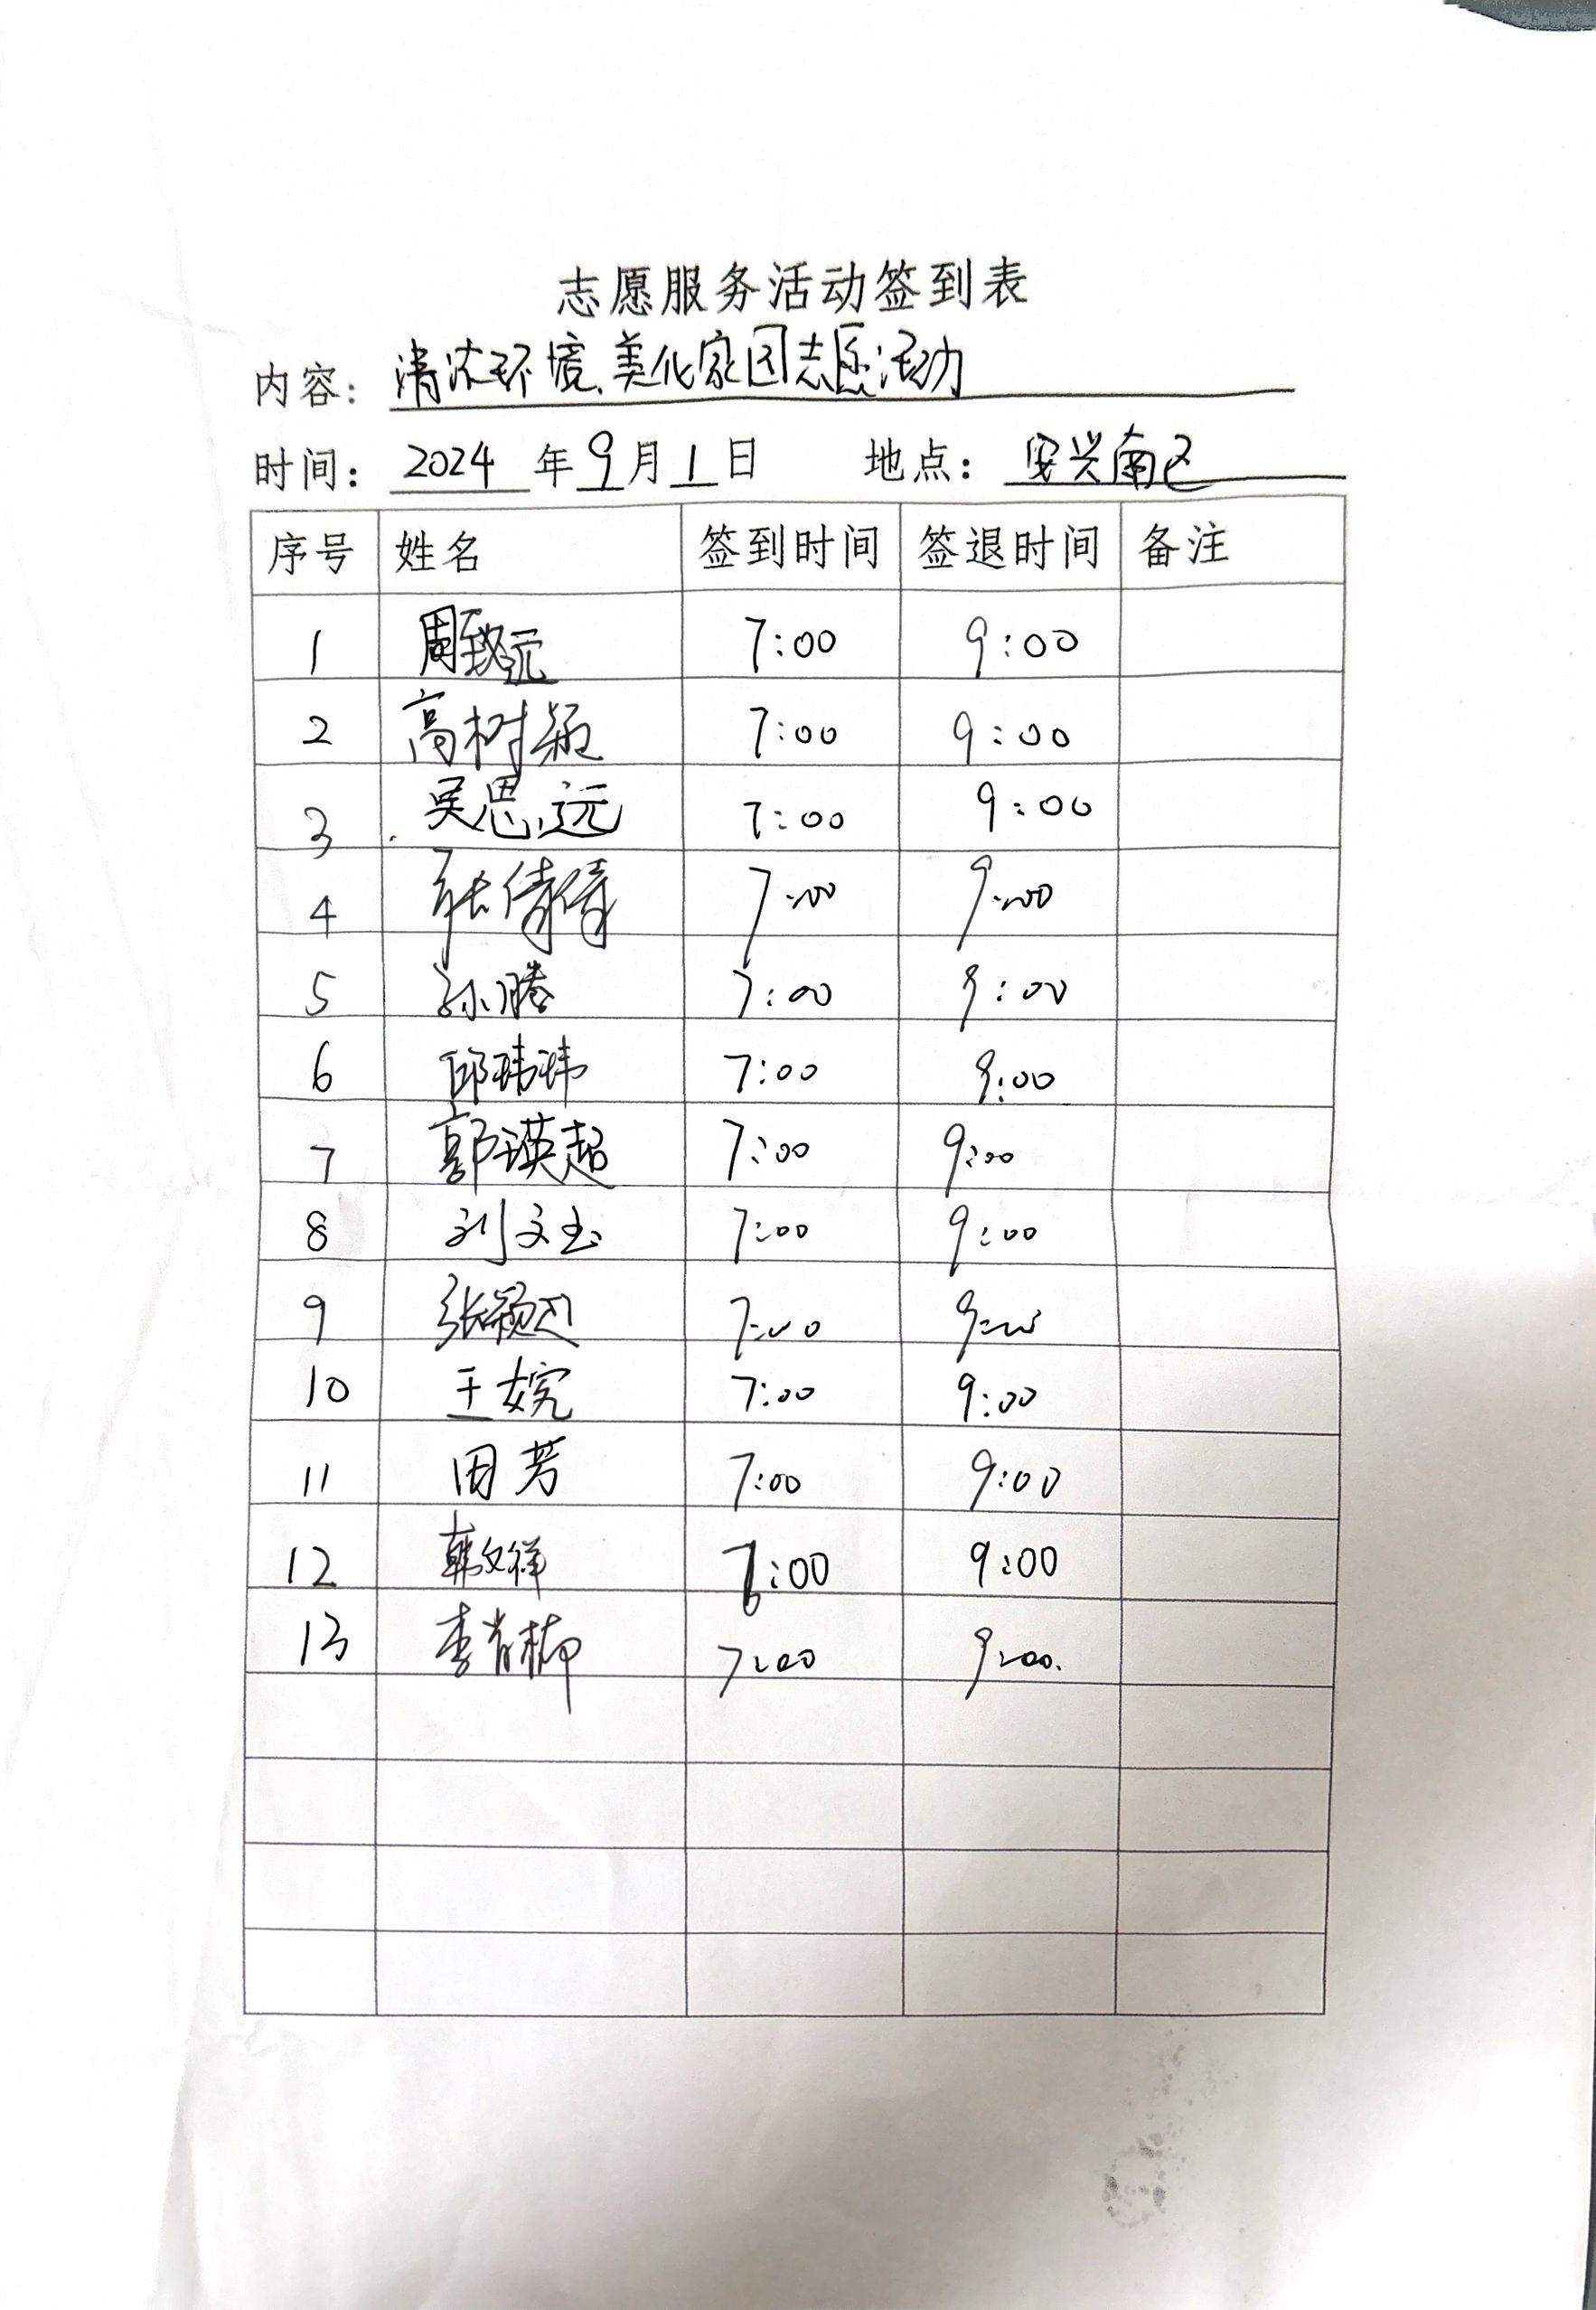 志愿服务活动签到表
内容: 清洁环境、美化家园志愿活动
时间: 2024 年 9 月 1 日 地点: 安兴南区
序号 姓名 签到时间 签退时间 备注
1 周致远 7:00 9:00
2 高树颖 7:00 9:00
3 吴思远 7:00 9:00
4 张倩倩 7:00 9:00
5 孙腾 7:00 9:00
6 邱玮玮 7:00 9:00
7 郭瑛超 7:00 9:00
8 刘文玉 7:00 9:00
9 张颖 7:00 9:00
10 王婉 7:00 9:00
11 田芳 7:00 9:00
12 韩文祥 7:00 9:00
13 李肖楠 7:00 9:00